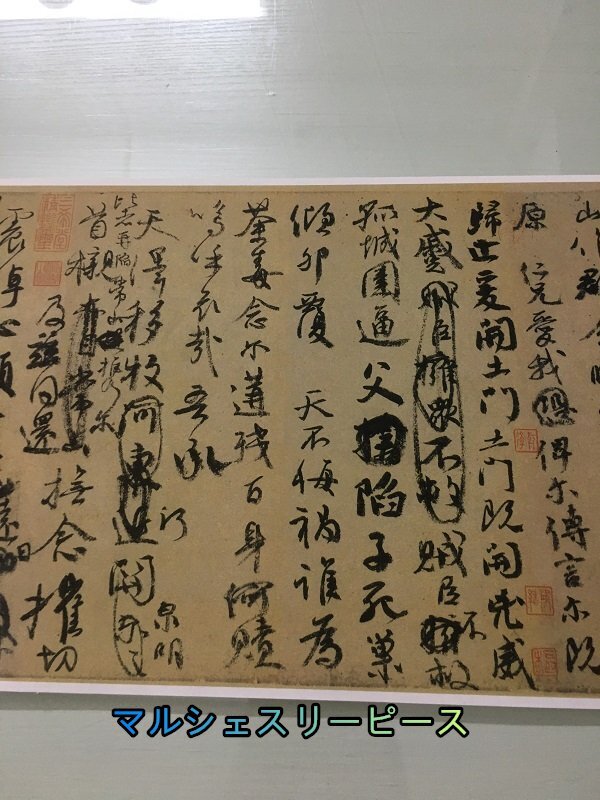 山作郡余時
原 仁兄愛我俾爾傳言爾既
歸止爰開土門土門既開凶威
大蹙賊臣擁衆不救賊臣不救
孤城圍逼父陷子死巢
傾卵覆 天不悔禍誰為
荼毒念爾遘殘百身何贖
嗚呼哀哉吾承
天澤移牧河東近關 泉明
比者再陷常山攜爾
首櫬
及茲同還撫念摧切
震悼心顏
マルシェスリーピース